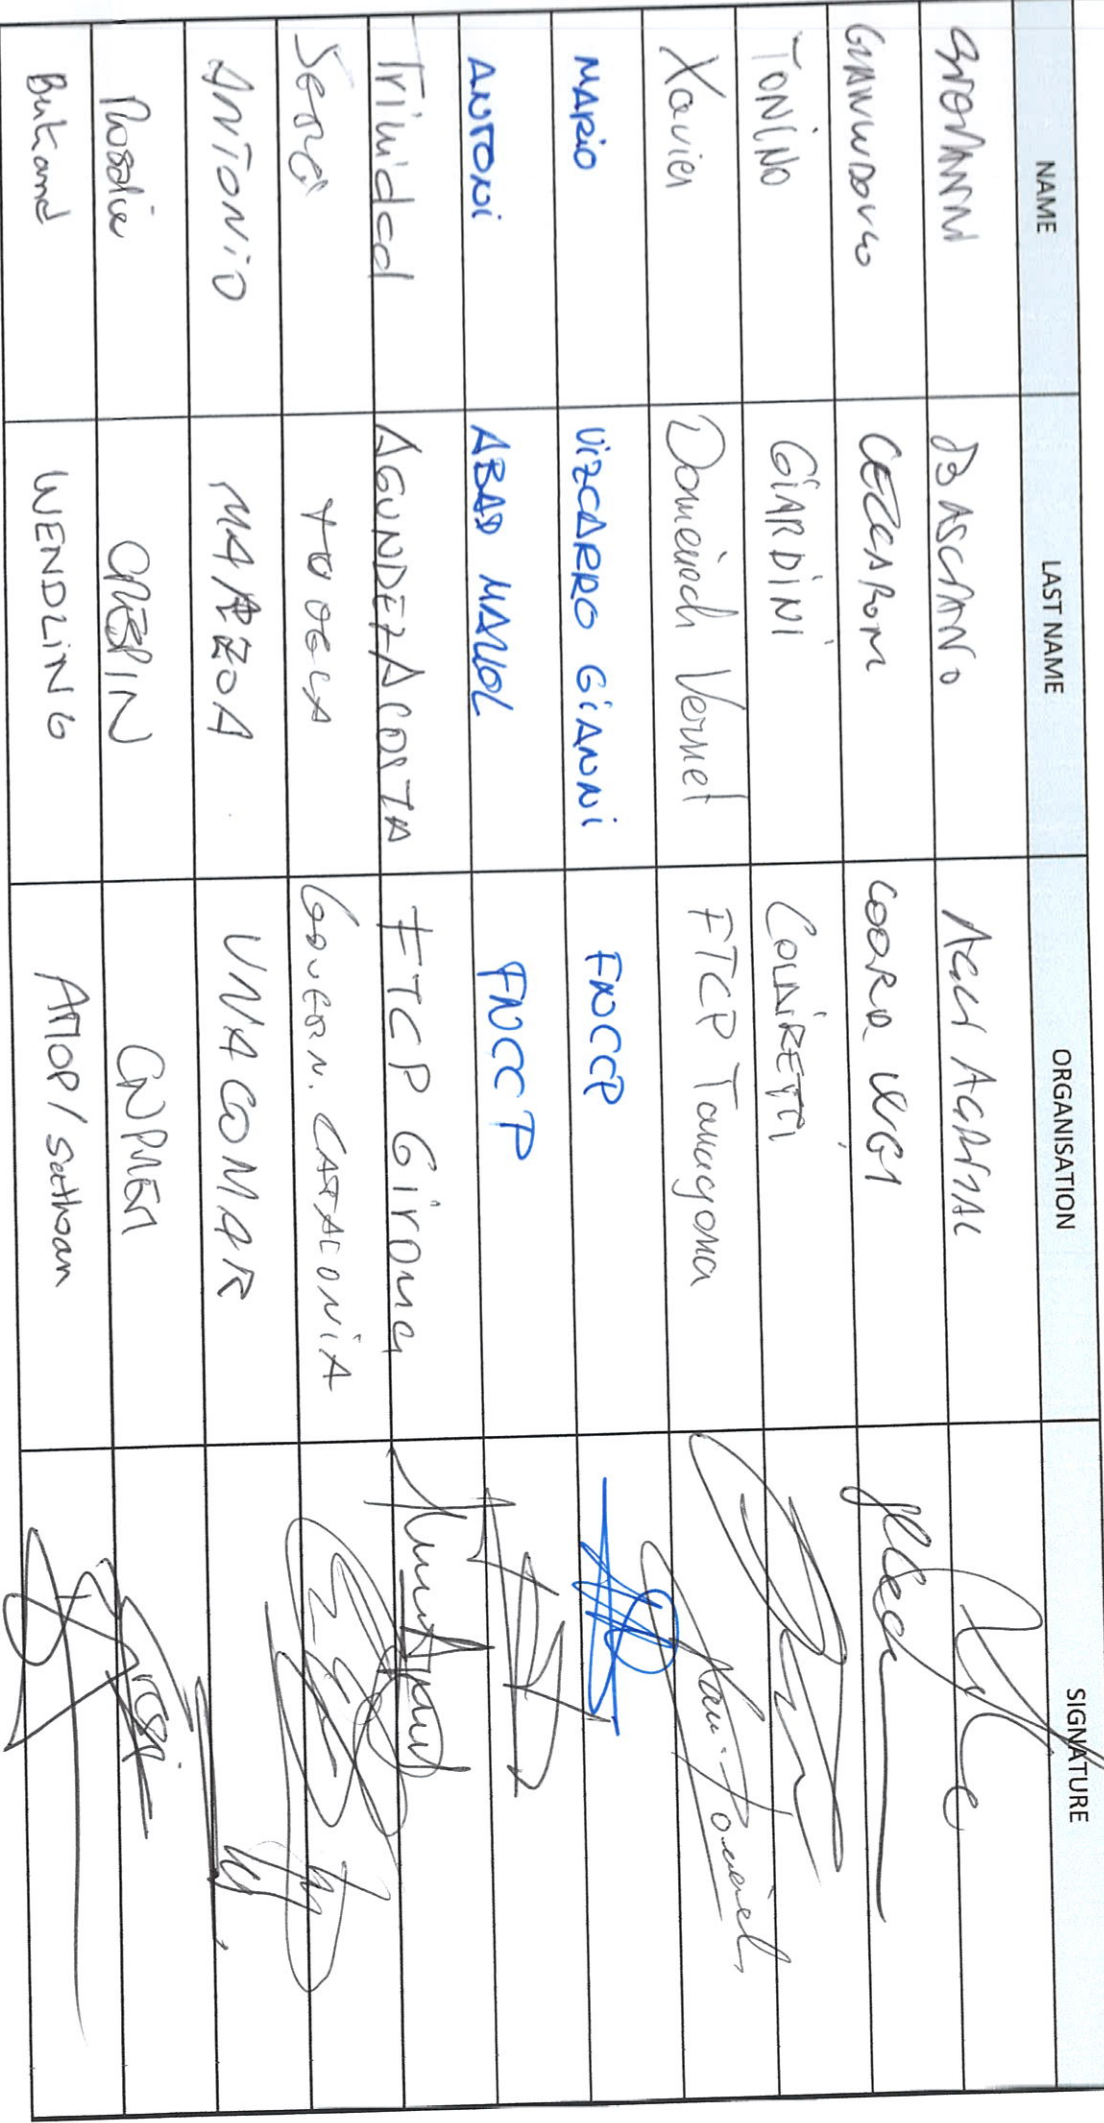 NAME LAST NAME ORGANISATION SIGNATURE
GIOVANNI BASCIANO AGCI AGRITAL
GIANLUDOVICO CECCARONI COORD
TONINO GIARDINI
Xavier Domènech Vernet FTCP Tarragona
MARIO VIZCARRO GIANNI FNCCP
ANTONI ABAD MALLOL FNCCP
Trinidad AGUNDEZ ACOSTA FTCP Girona
Sergi TUDELA GOVERN. CATALONIA
ANTONIO MARZOA UNACOMAR
Rosalie CRESPIN CNPMEM
Bertrand WENDLING AMOP/Sathoan